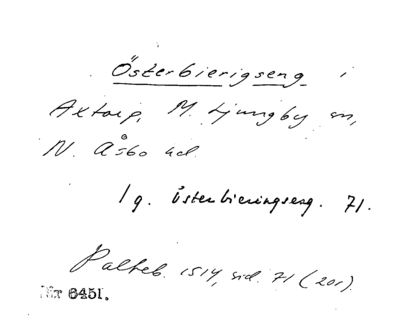 Österbierigseng i
Axtorp, M. Ljungby sn,
N. Åsbo hd.
1 g. Österbieringseng. 71.
Palteb. 1514, sid. 71 (201).
Nr 6451.